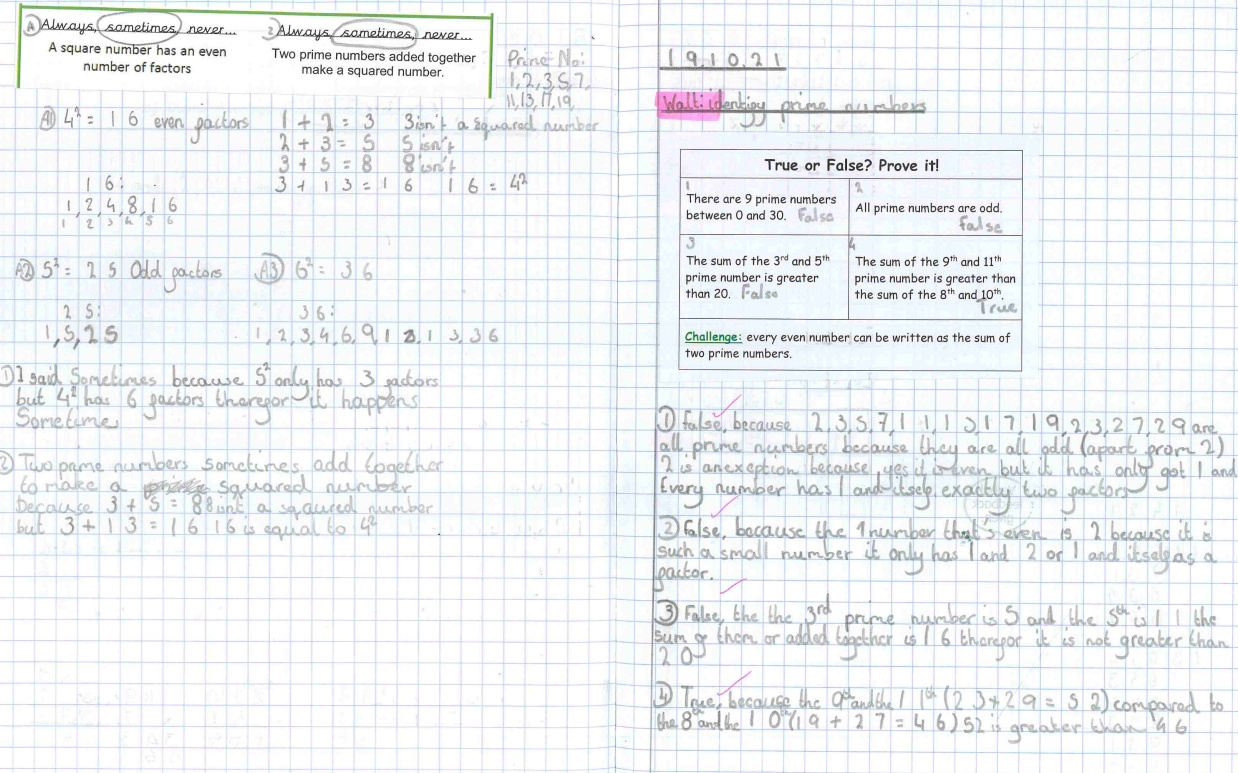 A Always, sometimes, never...
A square number has an even
number of factors
2 Always, sometimes, never...
Two prime numbers added together
make a squared number.
Prime No:
1,2,3,5,7,
11,13,17,19,
A1 4² = 16 even factors
16:
1,2,4,8,16
1 2 3 4 5 6
1 + 2 = 3 3 isn't a squared number
2 + 3 = 5 5 isn't
3 + 5 = 8 8 isn't
3 + 13 = 16 16 = 4²
A2 5² = 25 Odd factors
25:
1,5,25
A3 6² = 36
36:
1,2,3,4,6,9,12,13,36
1 I said Sometimes because 5² only has 3 factors
but 4² has 6 factors therefor it happens
Sometime
2 Two prime numbers sometimes add together
to make a squared number
because 3 + 5 = 8 8 isnt a sqaured number
but 3 + 13 = 16 16 is equal to 4²
19.10.21
Walt: identify prime numbers
True or False? Prove it!
1
There are 9 prime numbers
between 0 and 30. False
2
All prime numbers are odd.
False
3
The sum of the 3rd and 5th
prime number is greater
than 20. False
4
The sum of the 9th and 11th
prime number is greater than
the sum of the 8th and 10th.
True
Challenge: every even number can be written as the sum of
two prime numbers.
1 False, because 2,3,5,7,11,13,17,19,23,27,29 are
all prime numbers because they are all odd (apart from 2)
2 is an exeption because yes it is even but it has only got 1 and
Every number has 1 and itself exactly two factors
2 False, because the 1 number that's even is 2 because it is
such a small number it only has 1 and 2 or 1 and itself as a
factor.
3 False, the the 3rd prime number is 5 and the 5th is 11 the
sum of them or added together is 16 therefor it is not greater than
20
4 True, because the 9th and the 11th (23+29=52) compared to
the 8th and the 10th (19+27=46) 52 is greater than 46